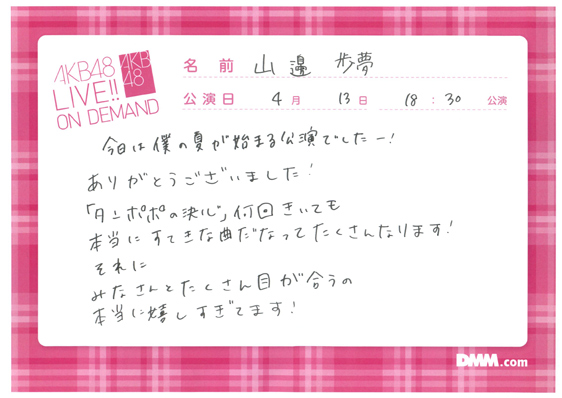 AKB48
LIVE!!
ON DEMAND
AKB
48
名前 山邊 歩夢
公演日 4月 13日 18:30 公演
今日は僕の夏が始まる公演でしたー!
ありがとうございました!
「タンポポの決心」何回きいても
本当にすてきな曲だなってたくさんなります!
それに
みなさんとたくさん目が合うの
本当に嬉しすぎてます!
DMM.com